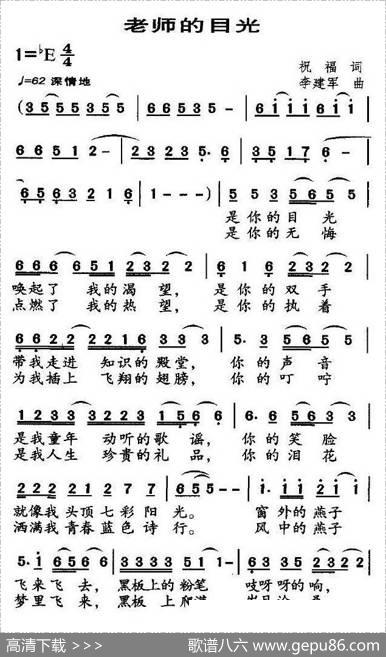 老师的目光
1=♭E 4/4
祝福 词
♩=62 深情地
李建军 曲
(3 5 5 5 3 5 5 | 6 6 5 3 5 - | 6 i i i 6 i i |
6 6 5 1 2 - | 2 3 2 3 5 · 6 | 3 5 1 7 6 - |
6 5 6 3 2 1 6 | 1 - - -) | 5 5 3 5 6 5 5 |
是你的目光
是你的无悔
6 6 6 6 5 1 2 3 2 2 | 6 1 6 2 3 2 2 |
唤起了 我的渴望， 是你的双手
点燃了 我的热望， 是你的执着
6 6 2 2 2 2 1 6 5 3 3 3 | 5 · 3 5 6 5 5 |
带我走进 知识的殿堂， 你的声音
为我插上 飞翔的翅膀， 你的叮咛
1 2 3 3 3 2 2 3 1 5 6 6 | 6 · 5 5 6 3 3 |
是我童年 动听的歌谣， 你的笑脸
是我人生 珍贵的礼品， 你的泪花
2 2 2 2 1 2 7 7 | 6 5 5 - - | i · i i 2 i i |
就像我头顶七彩阳光。 窗外的燕子
洒满我青春蓝色诗行。 风中的燕子
5 · i 6 5 6 6 | 3 3 3 3 5 1 2 3 | 6 3 3 5 2 3 2 2 |
飞来飞去， 黑板上的粉笔 吱呀呀的响，
梦里飞来， 黑板上
高清下载 >>>
歌谱八六 www.gepu86.com